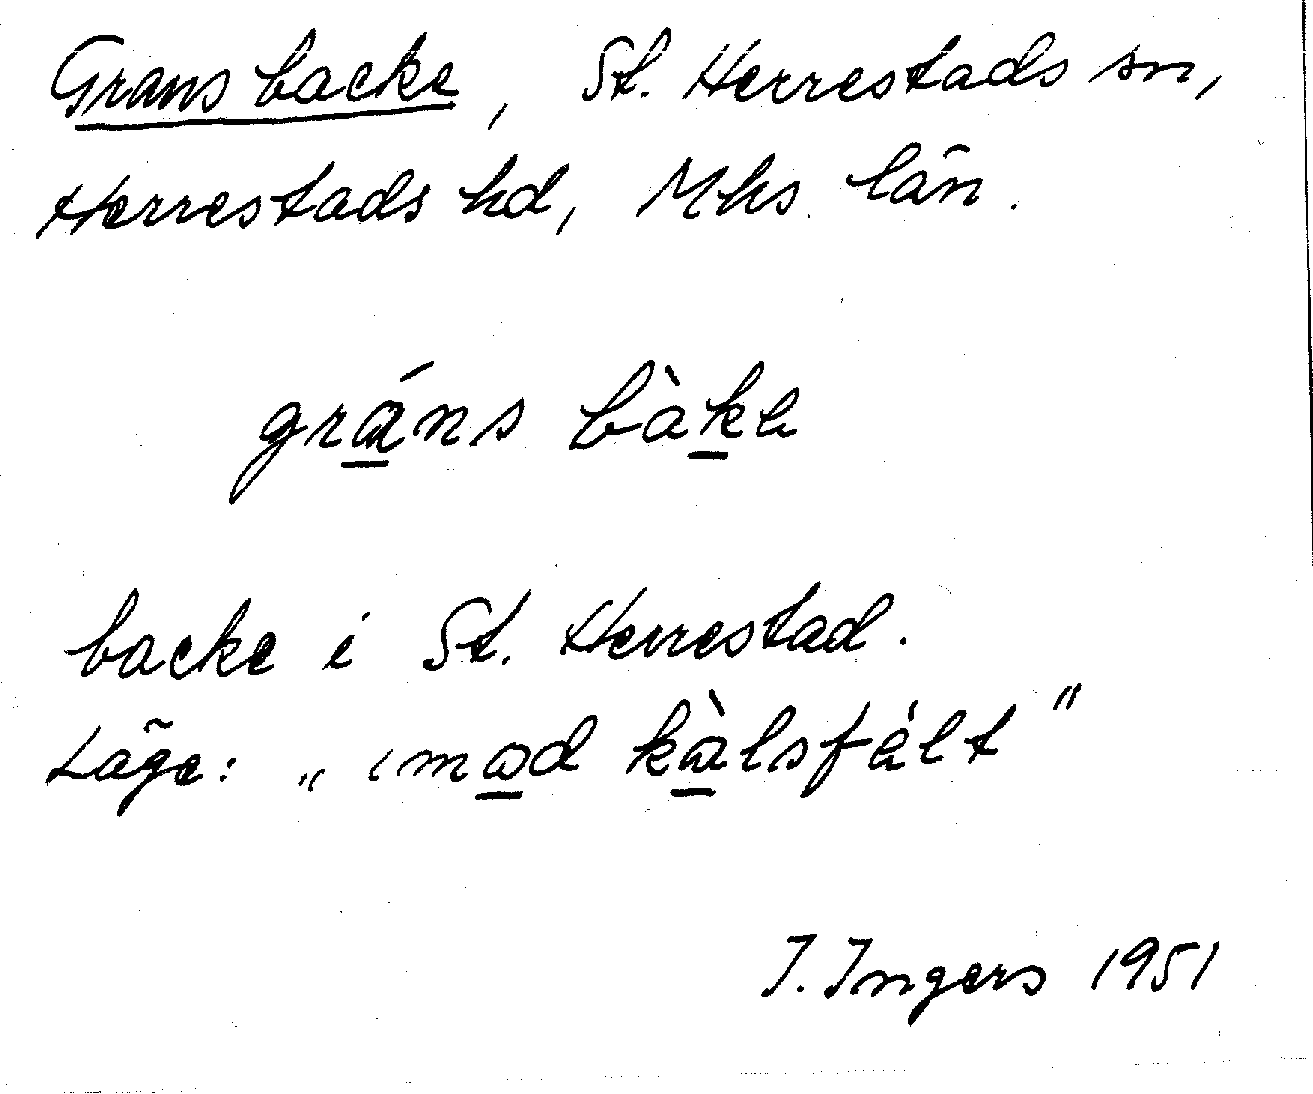 Grans backe, St. Herrestads sn,
Herrestads hd, Mhs. län.
grá̱ns bàḵe
backe i St. Herrestad.
Läge: „ imo̱d kà̱lsfélt"
I. Ingers 1951